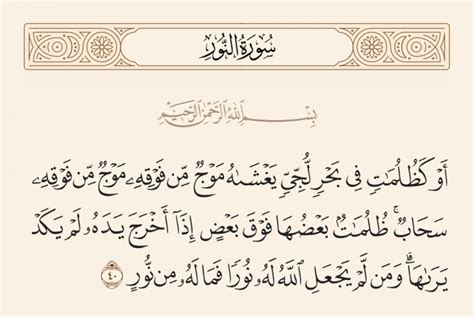 سُورَةُ النُّورِ
بِسْمِ ٱللَّهِ ٱلرَّحْمَٰنِ ٱلرَّحِيمِ
أَوْ كَظُلُمَٰتٍ فِى بَحْرٍ لُّجِّىٍّ يَغْشَىٰهُ مَوْجٌ مِّن فَوْقِهِۦ مَوْجٌ مِّن فَوْقِهِۦ
سَحَابٌ ۚ ظُلُمَٰتٌۢ بَعْضُهَا فَوْقَ بَعْضٍ إِذَآ أَخْرَجَ يَدَهُۥ لَمْ يَكَدْ
يَرَىٰهَا ۗ وَمَن لَّمْ يَجْعَلِ ٱللَّهُ لَهُۥ نُورًا فَمَا لَهُۥ مِن نُّورٍ ٤٠